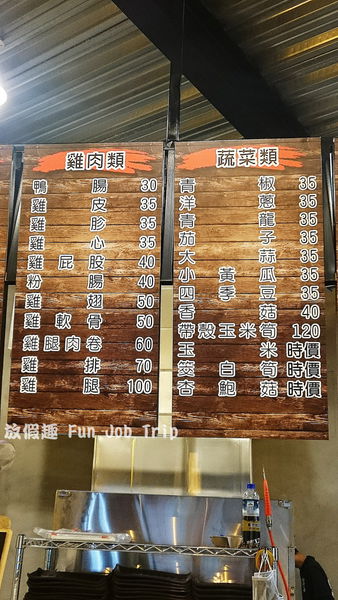 雞肉類
鴨腸 30
雞皮 35
雞胗 35
雞心 35
雞屁股 40
粉腸 40
雞翅 50
雞軟骨 50
雞腿肉卷 60
雞排 70
雞腿 100
蔬菜類
青椒 35
洋蔥 35
青龍 35
茄子 35
大蒜 35
小黃瓜 35
四季豆 35
香菇 40
帶殼玉米筍 120
玉米 時價
筊白筍 時價
杏鮑菇 時價
放假趣 Fun Job Trip